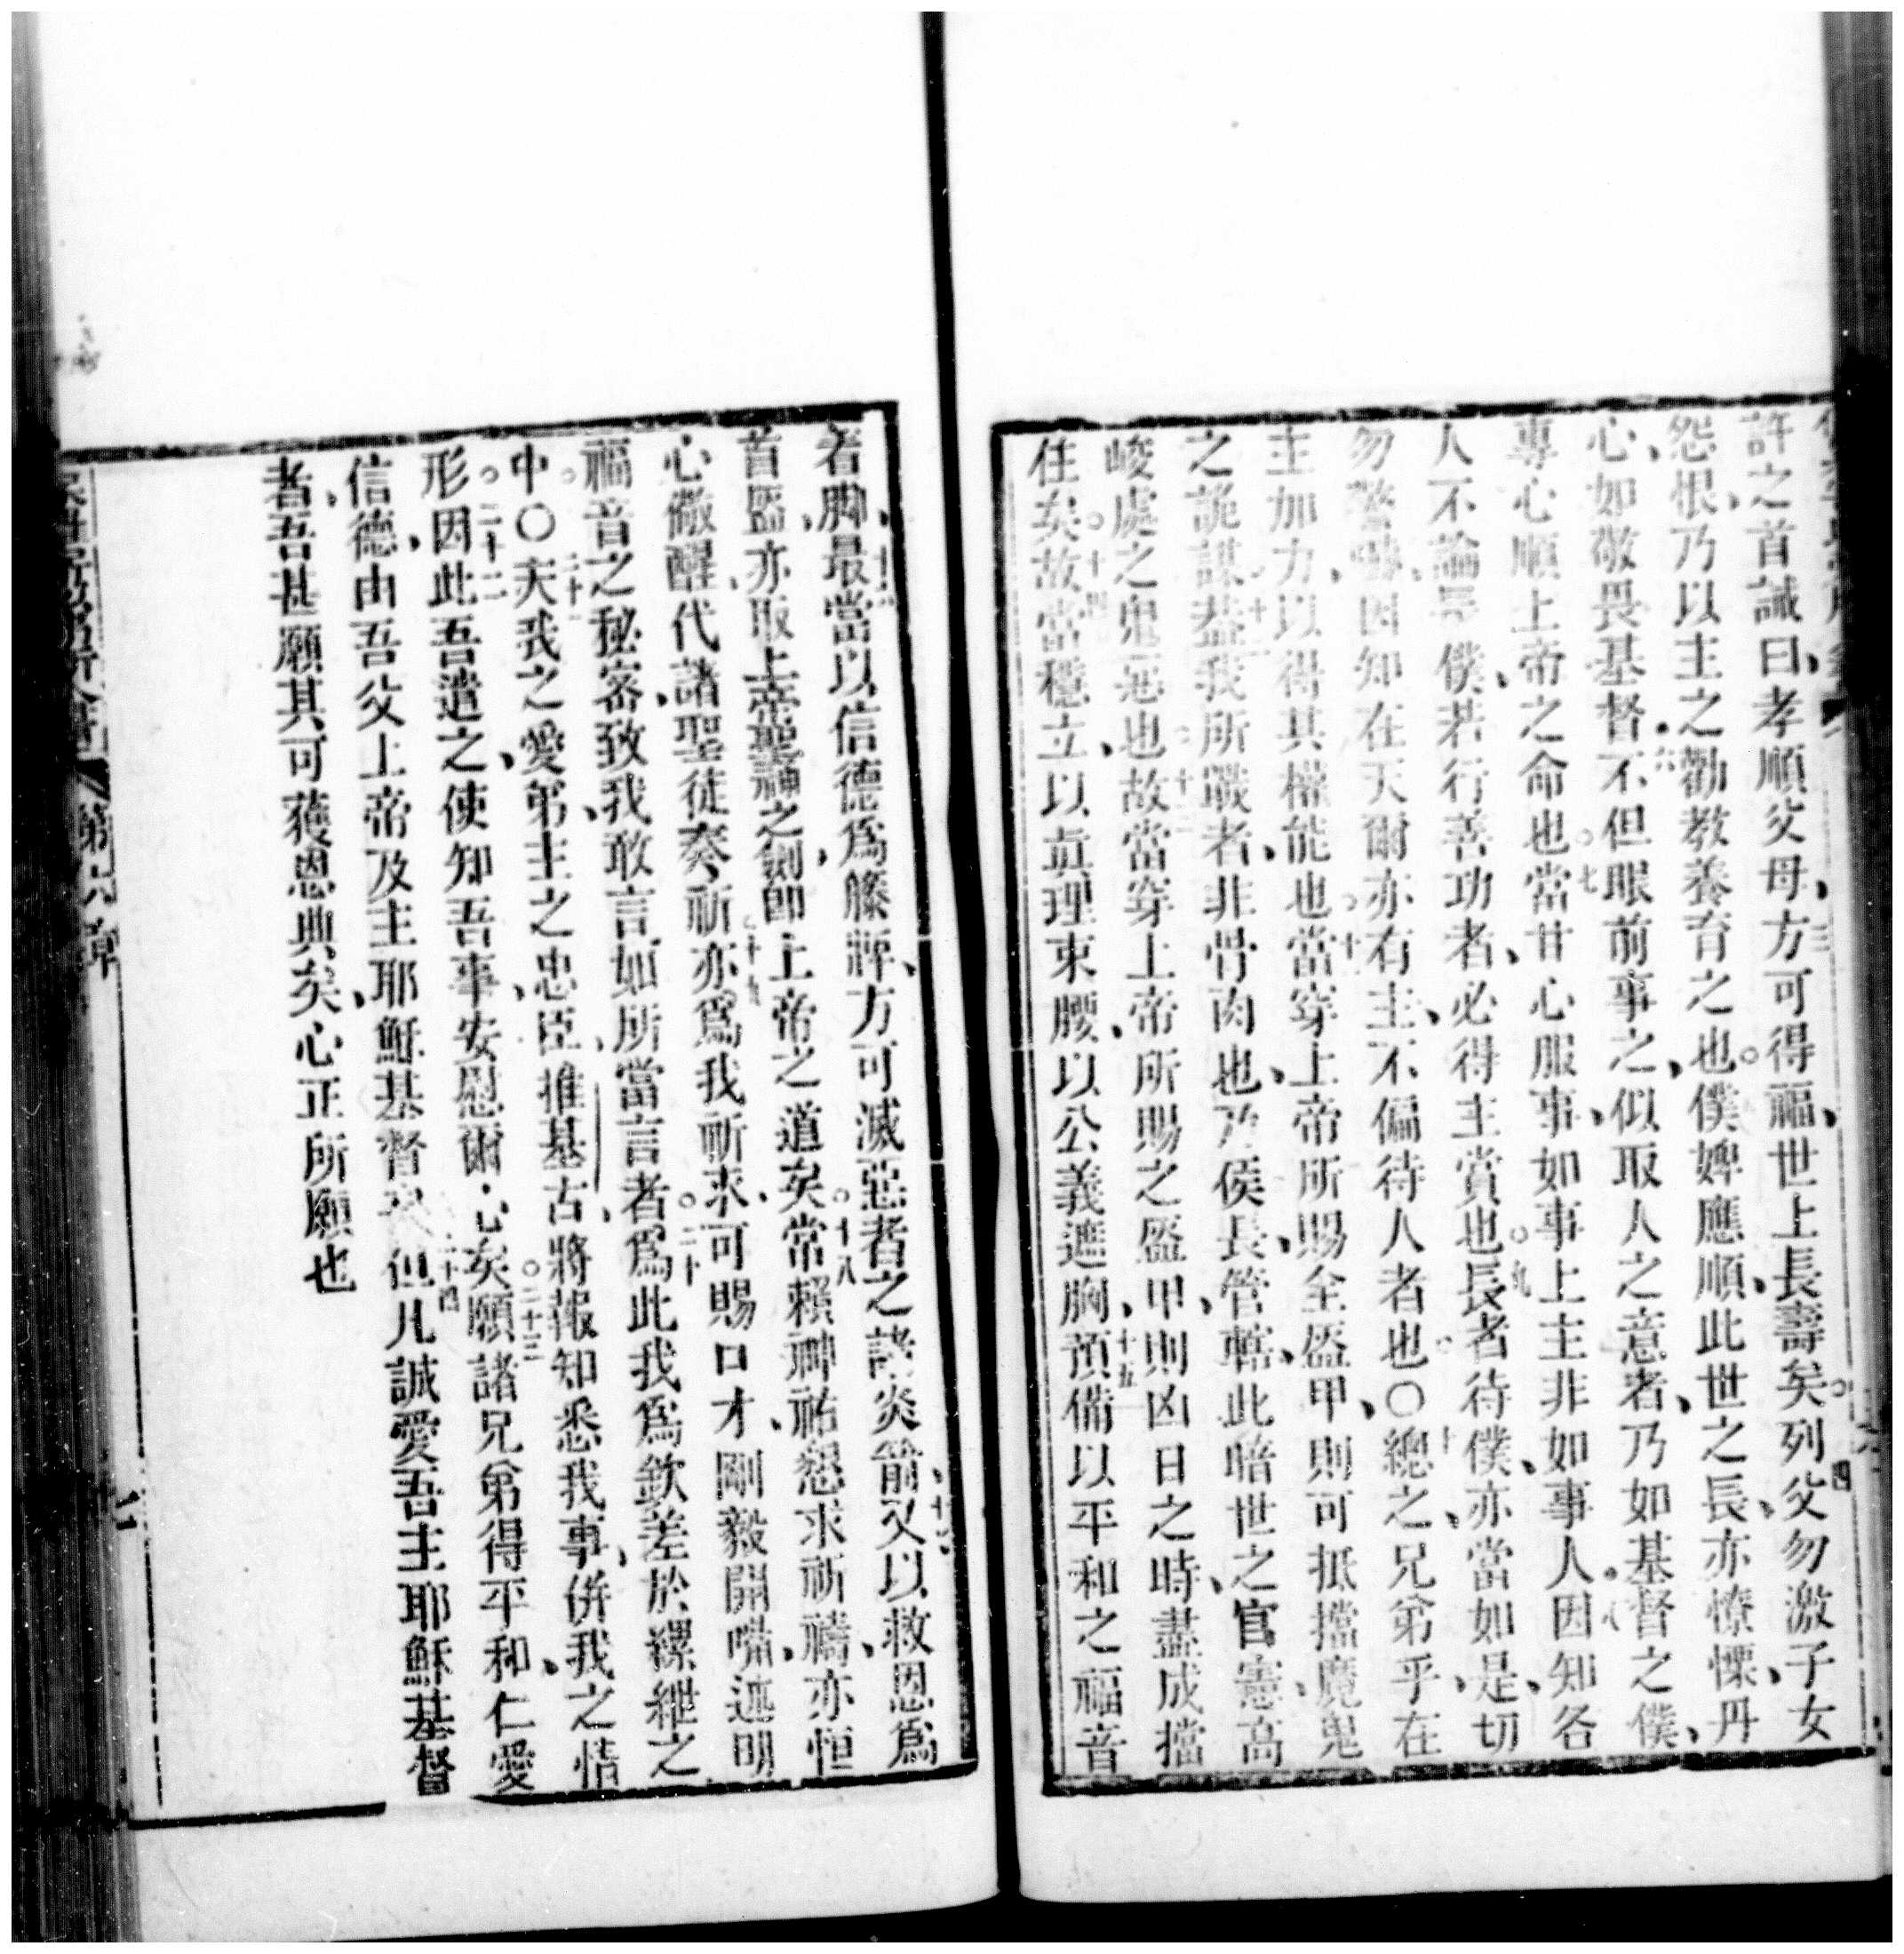 許之首誡曰、孝順父母、方可得福、世上長壽矣。四列父勿激子女
怨恨、乃以主之勸教養育之也。僕婢應順、此世之長、亦憭慄丹
心、如敬畏基督。六不但眼前事之、似取人之意者、乃如基督之僕、
專心順上帝之命也。七當甘心服事、如事上主非如事人。八因知各
人不論 僕、若行善功者、必得主賞也。九長者待僕、亦當如是、切
勿 嚇、因知在天爾亦有主、不偏待人者也。〇十總之、兄弟乎、在
主加力、以得其權能也。十一當穿上帝所賜全盔甲、則可抵擋魔鬼
之詭謀。十二蓋我所戰者、非骨肉也、乃侯長、管轄、此暗世之官憲、高
峻處之鬼惡也。十三故當穿上帝所賜之盔甲、則凶日之時、盡成擋
住矣。十四故當穩立、以眞理束腰、以公義遮胸、十五預備以平和之福音
者脚、十六最當以信德爲籐牌、方可滅惡者之諸炎箭、十七又以救恩爲
首盔、亦取上帝聖神之劍、卽上帝之道矣。十八常賴神祐懇求祈禱、亦恒
心儆醒、代諸聖徒奏祈。十九亦爲我祈求、可賜口才、剛毅開嘴、述明
福音之秘密、致我敢言、如所當言者。二十爲此我爲欽差於縲紲之
中。〇二十一夫我之愛弟、主之忠臣、推基古、將報知悉我事、併我之情
形。二十二因此吾遣之、使知吾事、安慰爾心矣。二十三願諸兄弟得平和、仁愛
信德、由吾父上帝及主耶穌基督 二十四但凡誠愛吾主耶穌基督
者、吾甚願其可獲恩典矣、心正所願也
第六章